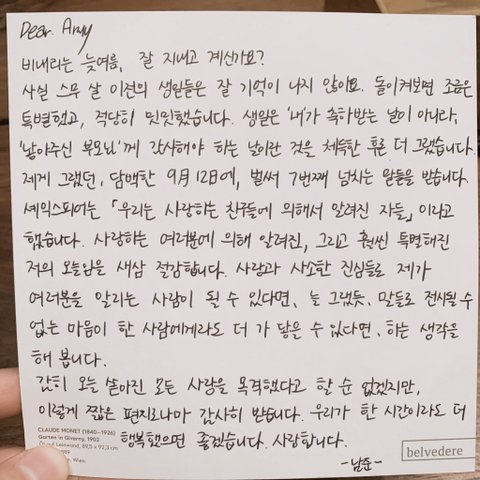 Dear. Army
비내리는 늦여름, 잘 지내고 계신가요?
사실 스무 살 이전의 생일들은 잘 기억이 나지 않아요. 돌이켜보면 조금은
특별했고, 적당히 밋밋했습니다. 생일은 '내'가 축하받는 날이 아니라,
'낳아주신 부모님'께 감사해야 하는 날이란 것을 체득한 후론 더 그랬습니다.
제게 그랬던, 담백한 9月 12日에, 벌써 7번째 넘치는 말들을 받습니다.
셰익스피어는 「우리는 사랑하는 친구들에 의해서 알려진 자들」이라고
했습니다. 사랑하는 여러분에 의해 알려진, 그리고 훨씬 특별해진
저의 오늘임을 새삼 절감합니다. 사랑과 사소한 진심들로 제가
여러분을 알리는 사람이 될 수 있다면, 늘 그랬듯, 말들로 전시될 수
없는 마음이 한 사람에게라도 더 가 닿을 수 있다면, 하는 생각을
해 봅니다.
감히 오늘 쏟아진 모든 사랑을 목격했다고 할 순 없겠지만,
이렇게 짧은 편지로나마 감사히 받습니다. 우리가 한 시간이라도 더
행복했으면 좋겠습니다. 사랑합니다.
-남준-
CLAUDE MONET (1840-1926)
Garten in Giverny, 1902
Öl auf Leinwand, 89,5 x 92,3 cm
Wien
belvedere